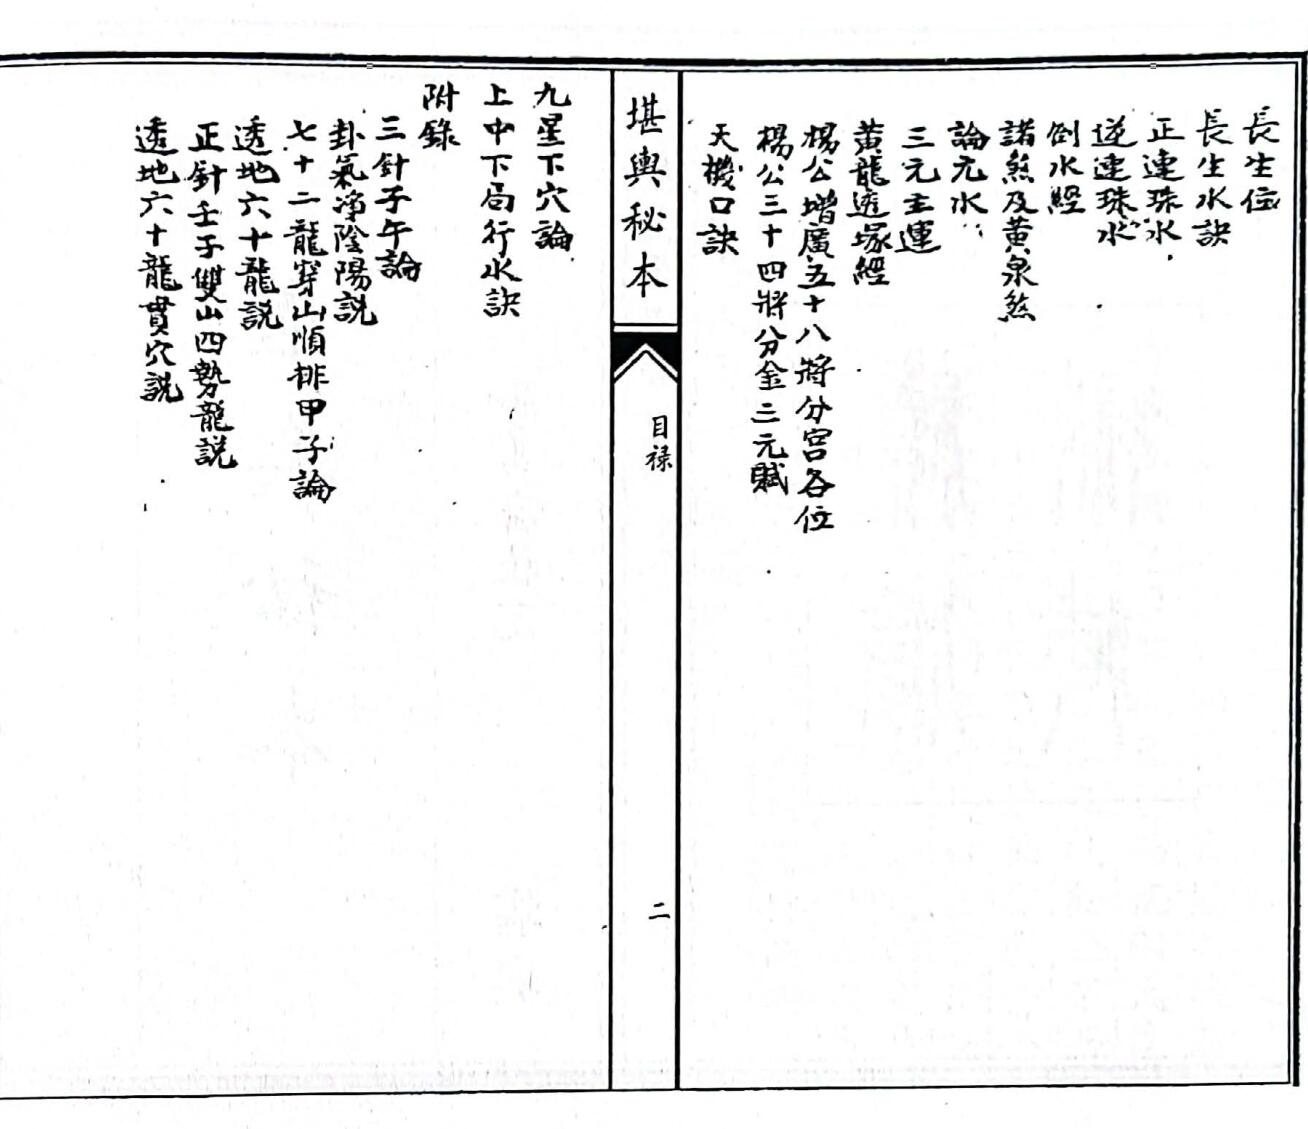 長生位
長生水訣
正連珠水
逆連珠水
倒水經
諸煞及黃泉煞
論元水
三元主運
黃龍透塚經
楊公增廣五十八將分宮各位
楊公三十四將分金三元賦
天機口訣
堪輿秘本
目祿
二
九星下穴論
上中下局行水訣
附錄
三針子午論
卦氣凈陰陽說
七十二龍穿山順排甲子論
透地六十龍説
正針壬子雙山四勢龍説
透地六十龍貫穴説